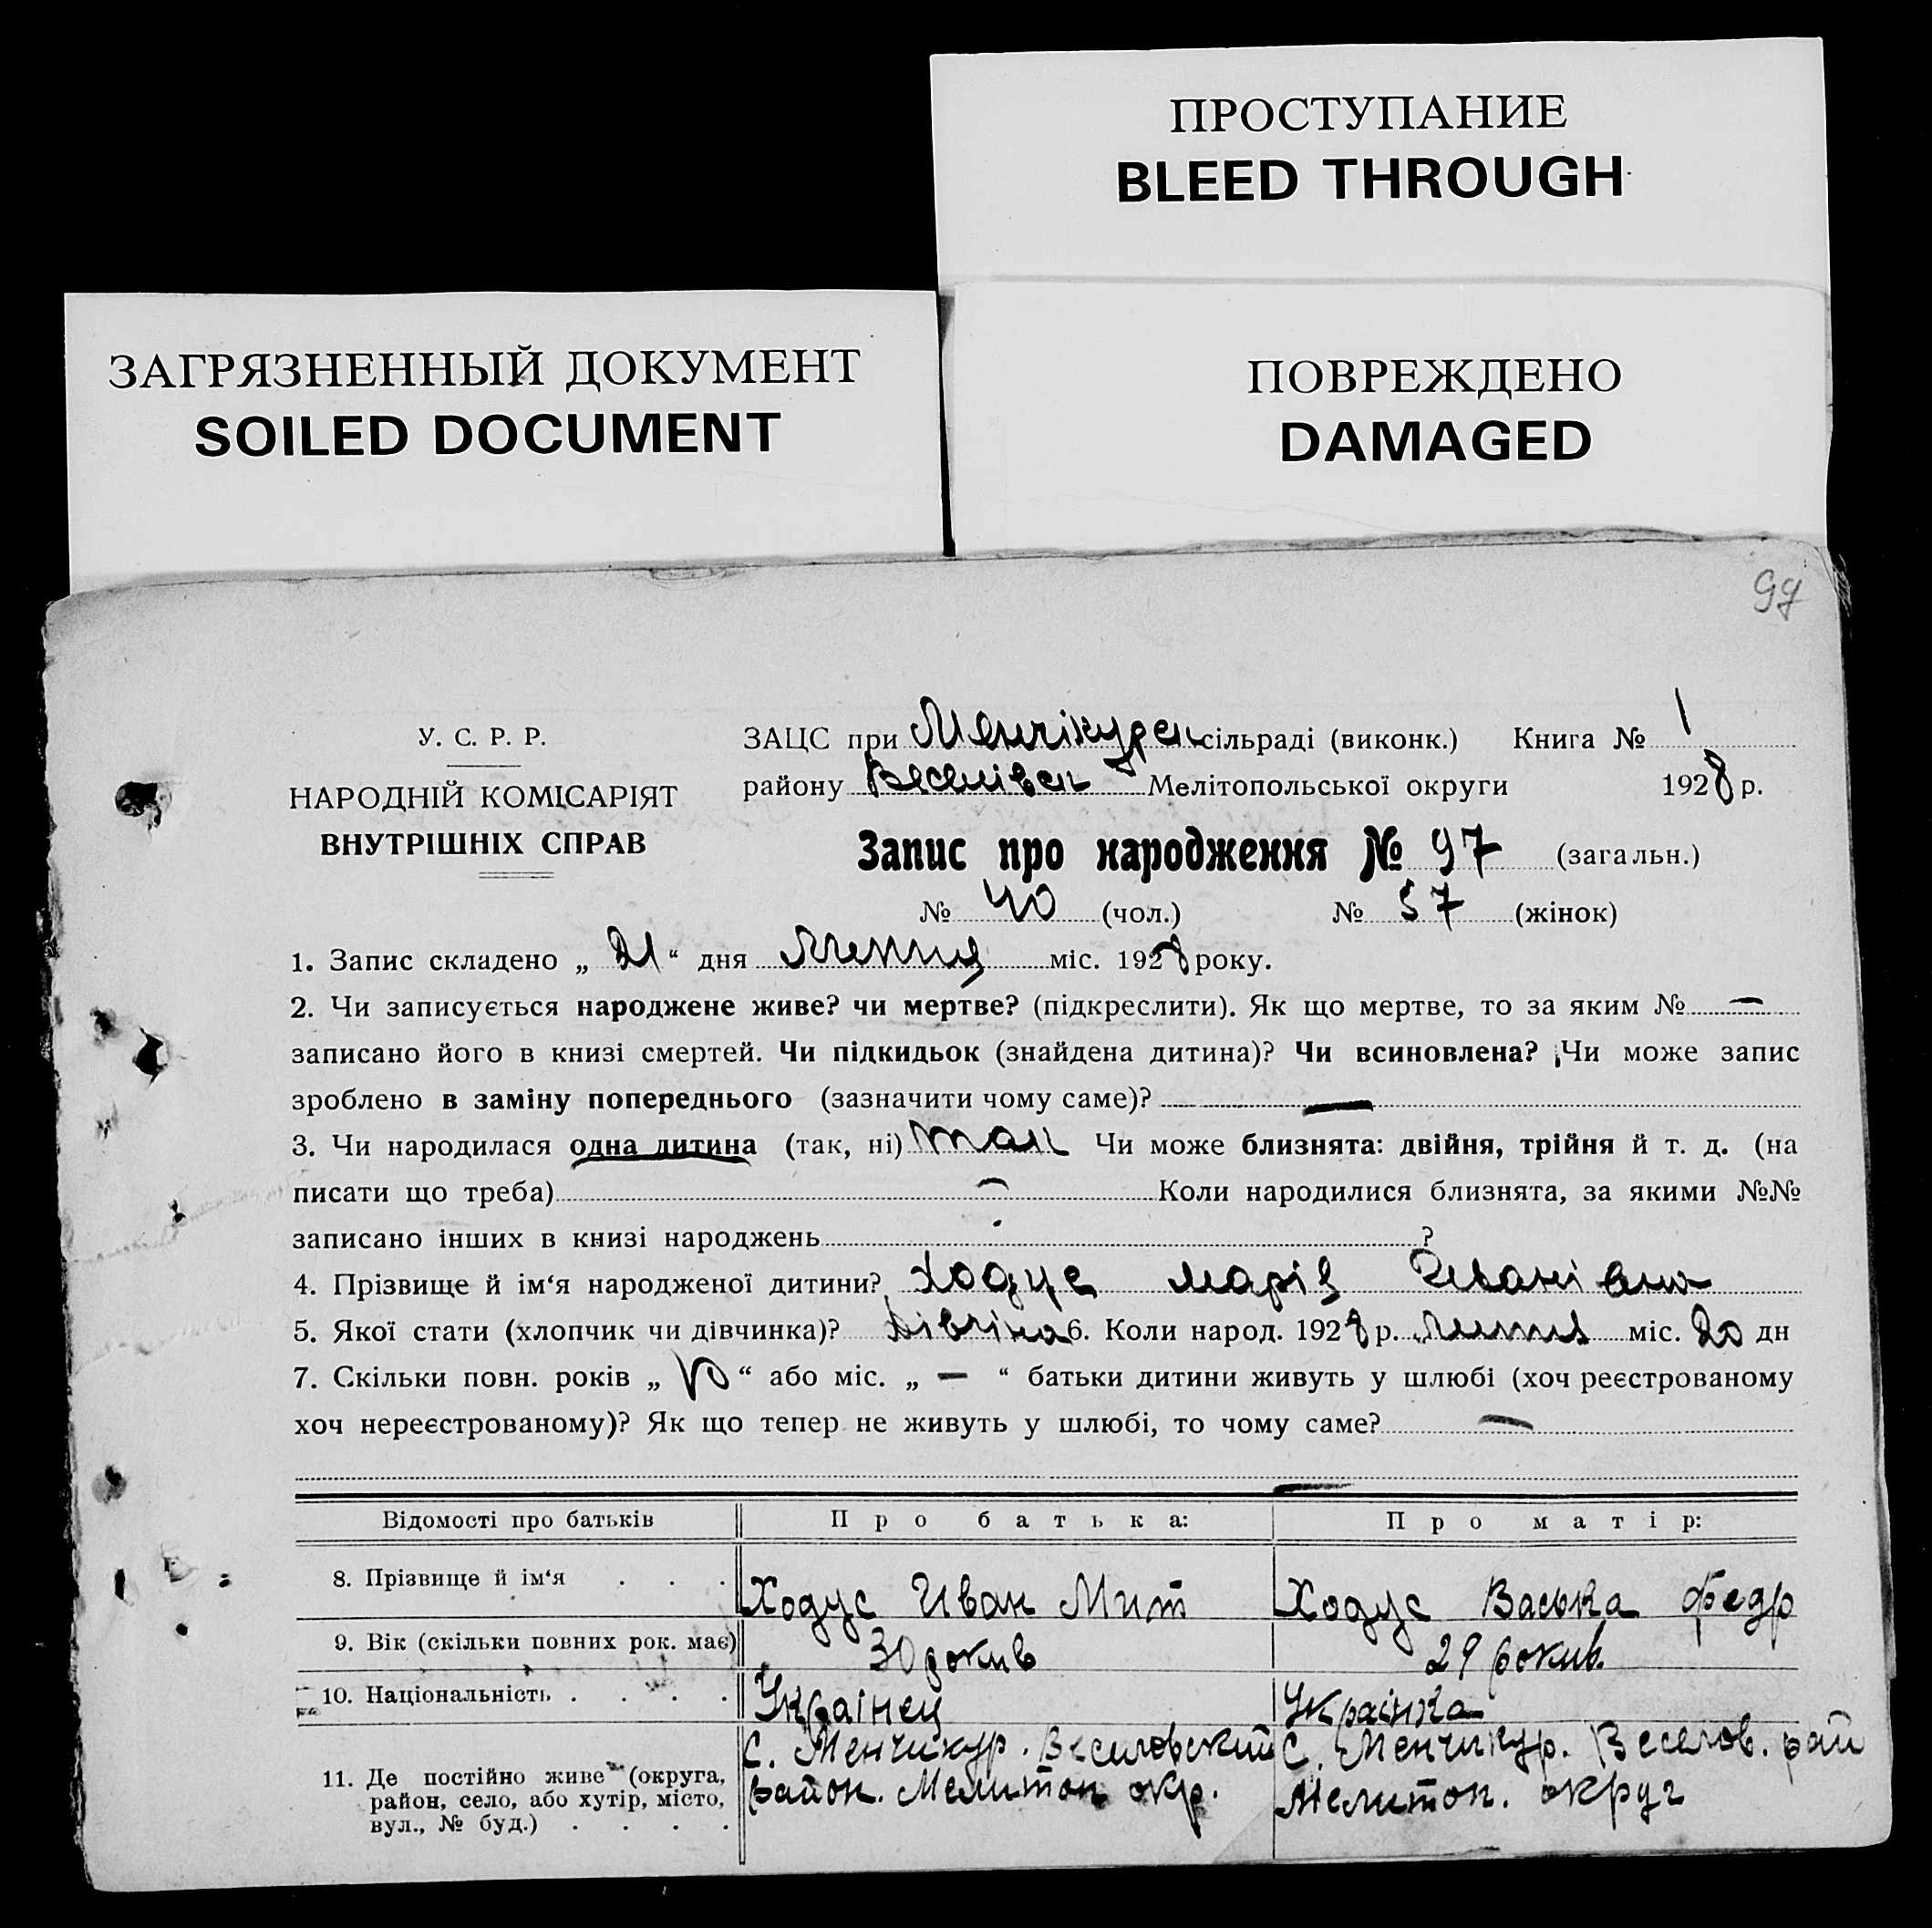 ПРОСТУПАНИЕ
BLEED THROUGH
ЗАГРЯЗНЕННЫЙ ДОКУМЕНТ
SOILED DOCUMENT
ПОВРЕЖДЕНО
DAMAGED
99
У. С. Р. Р.
НАРОДНІЙ КОМІСАРІЯТ
ВНУТРІШНІХ СПРАВ
ЗАЦС при Менчікурск сільраді (виконк.) Книга № 1
району Веселівск Мелітопольської округи 1928 р.
Запис про народження № 97 (загальн.)
№ 40 (чол.) № 57 (жінок)
1. Запис складено „ 21 “ дня міс. 1928 року.
2. Чи записується народжене живе? чи мертве? (підкреслити). Як що мертве, то за яким № —
записано його в книзі смертей. Чи підкидьок (знайдена дитина)? Чи всиновлена? Чи може запис
зроблено в заміну попереднього (зазначити чому саме)? —
3. Чи народилася одна дитина (так, ні) так Чи може близнята: двійня, трійня й т. д. (на
писати що треба) — Коли народилися близнята, за якими №№
записано інших в книзі народжень ?
4. Прізвище й ім‘я народженої дитини? Ходус Марія Іванівна
5. Якої стати (хлопчик чи дівчинка)? Дівчіна 6. Коли народ. 1928 р. міс. 20 дн
7. Скільки повн. років „ 10 “ або міс. „ — “ батьки дитини живуть у шлюбі (хоч реєстрованому
хоч нереєстрованому)? Як що тепер не живуть у шлюбі, то чому саме? —
Відомості про батьків Про батька: Про матір:
8. Прізвище й ім‘я . . . Ходус Иван Мит Ходус Васька Федр
9. Вік (скільки повних рок. має) 30 рокив 29 рокив.
10. Національність . . . . Українец Українка
11. Де постійно живе (округа, район, село, або хутір, місто, вул., № буд.) . . . .
С. Менчикур. Веселовский район. Мелитоп окр.
С. Менчикур. Веселов. рай Мелитоп. округ